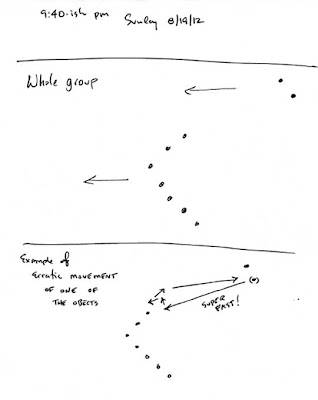 9:40-ish pm Sunday 8/19/12
Whole group
Example of
Erratic movement
of one of
the obects
super
fast!